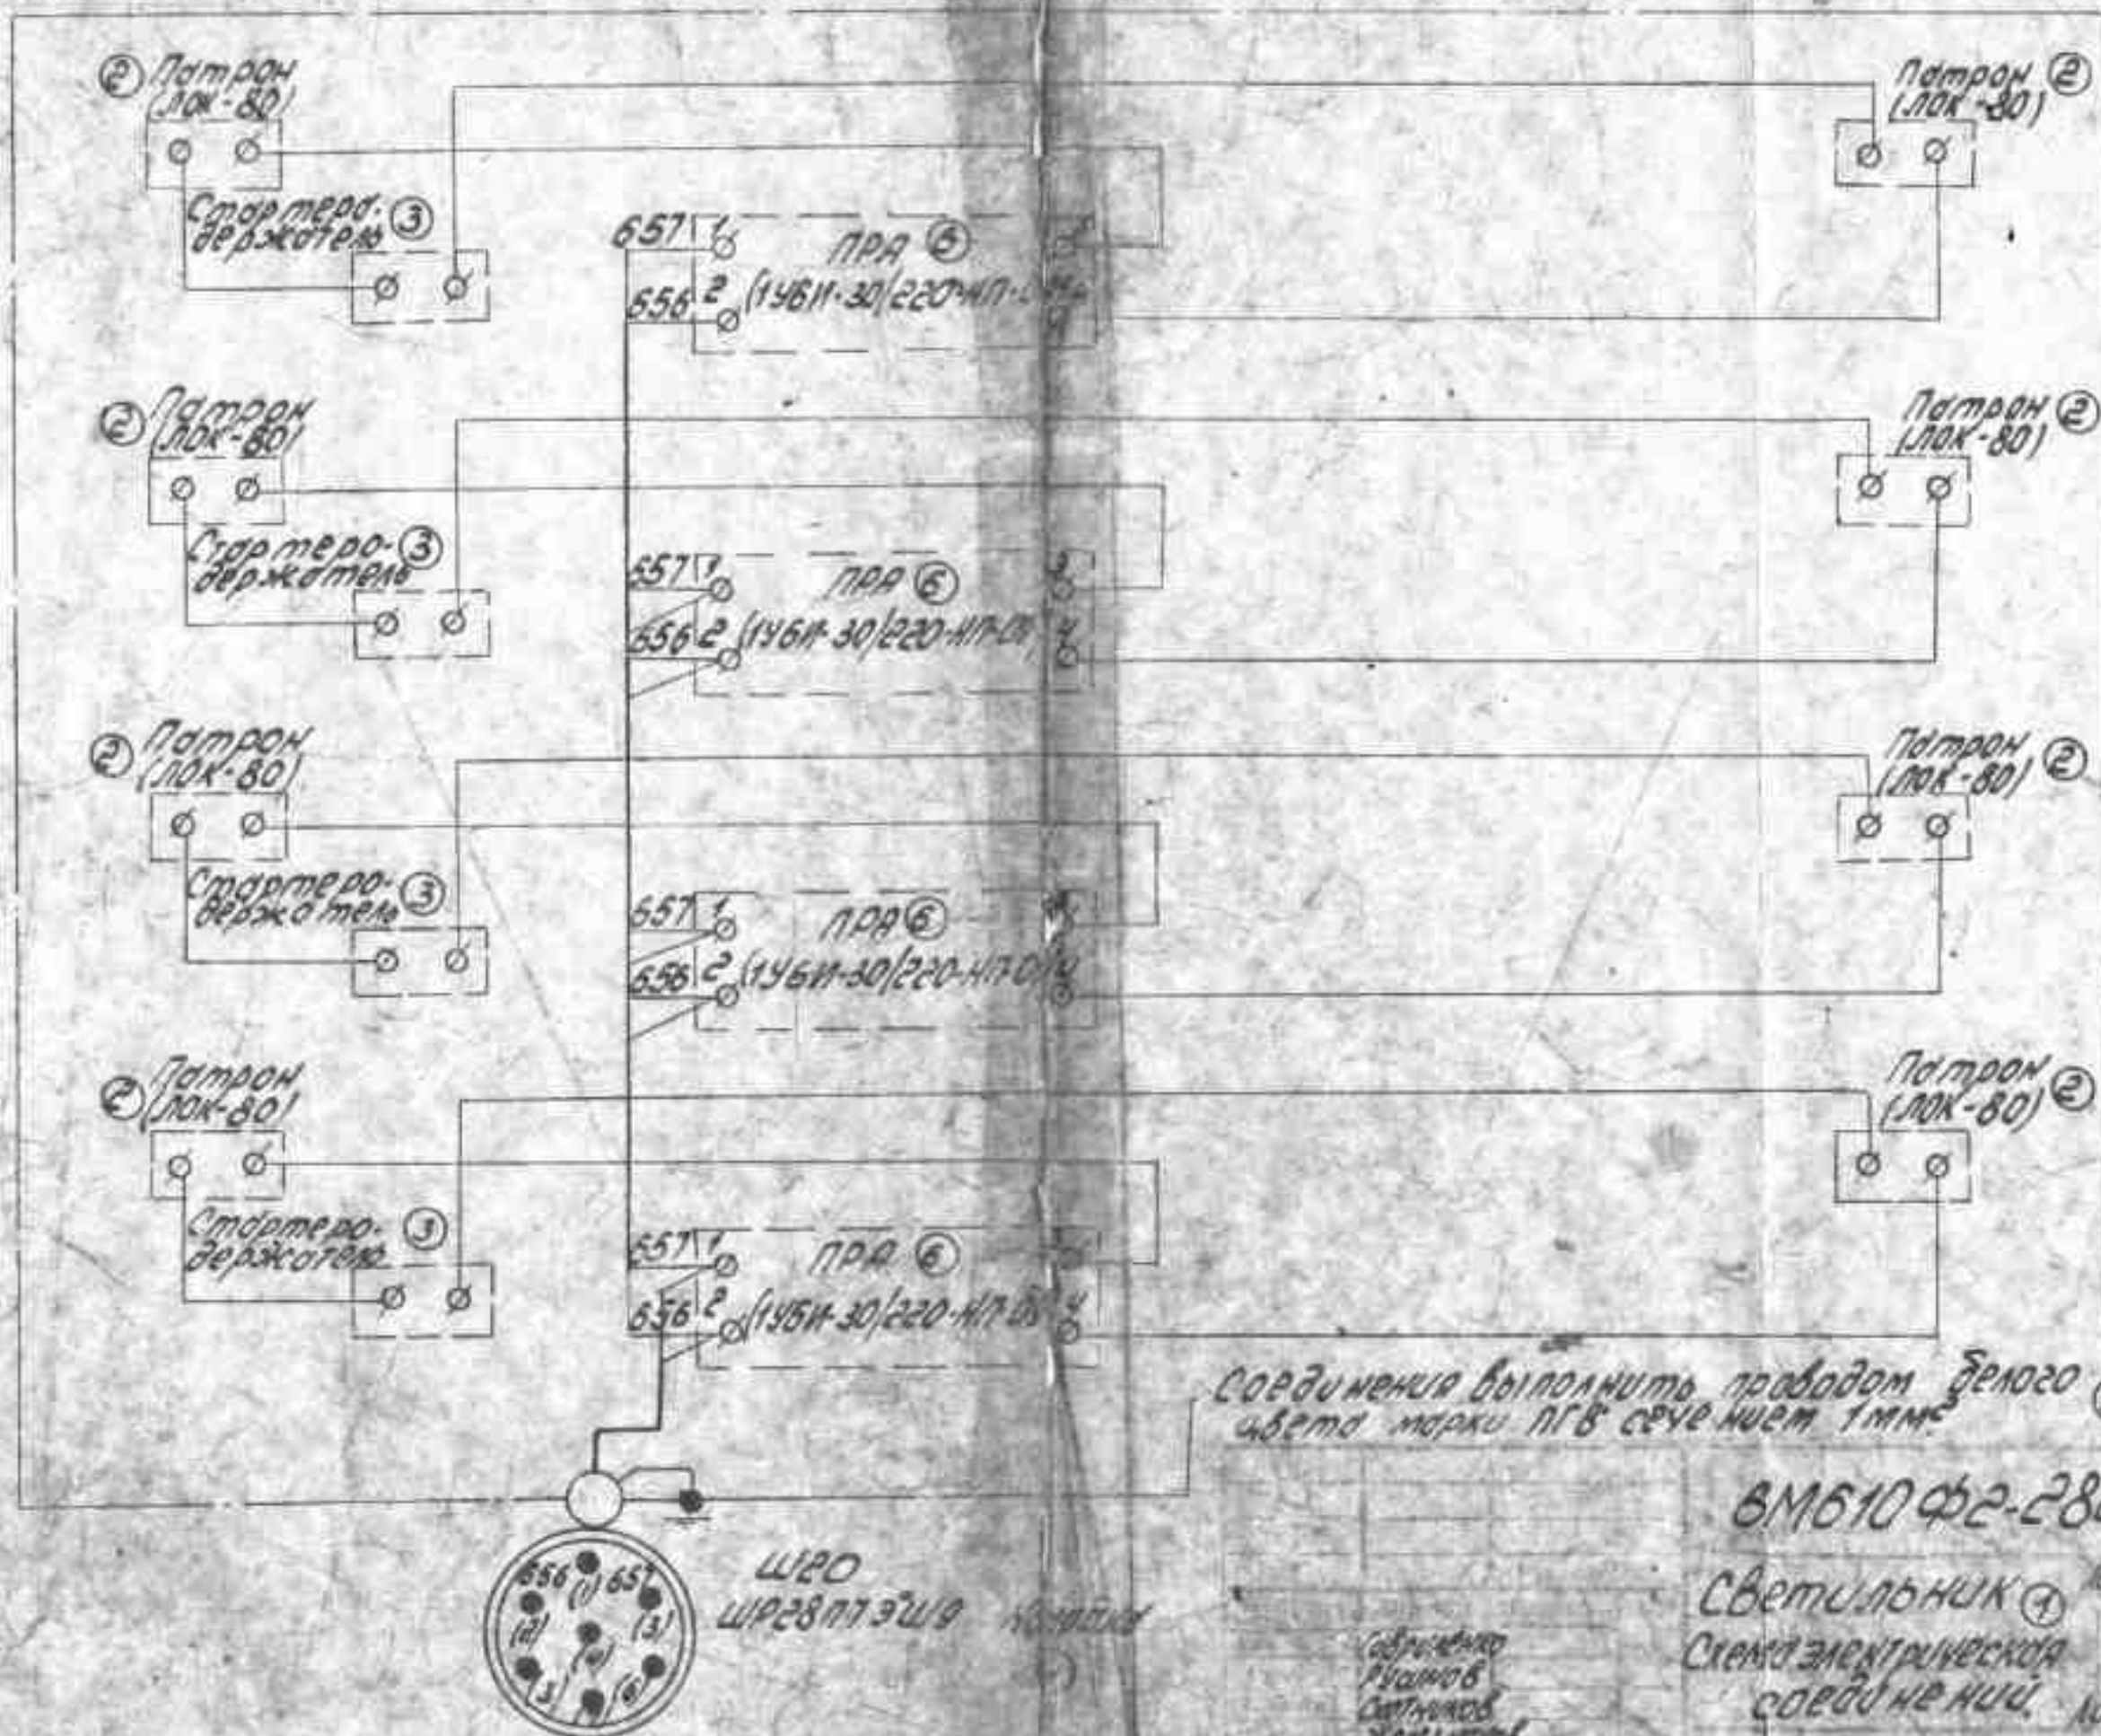 ② Патрон
(ЛОК-80)
Патрон ②
(ЛОК-80)
Стартеро-
держатель ③
657 1 ПРА ⑥
656 2 (1УБИ-30/220-НП-
② Патрон
(ЛОК-80)
Патрон ②
(ЛОК-80)
Стартеро- ③
держатель
657 1 ПРА ⑥ 3
656 2 (1УБИ-30/220-НП- 4
② Патрон
(ЛОК-80)
Патрон ②
(ЛОК-80)
Стартеро- ③
держатель
657 1 ПРА ⑥
656 2 (1УБИ-30/220-НП- 4
② Патрон
(ЛОК-80)
Патрон ②
(ЛОК-80)
Стартеро- ③
держатель
657 1 ПРА ⑥
656 2 (1УБИ-30/220-НП- 4
Соединения выполнить проводом белого
цвета марки ПГВ сечением 1мм²
6М610Ф2-28
656 (1) 657
(2) (3)
Ш20
Светильник ①
Схема электрическая
соединений.